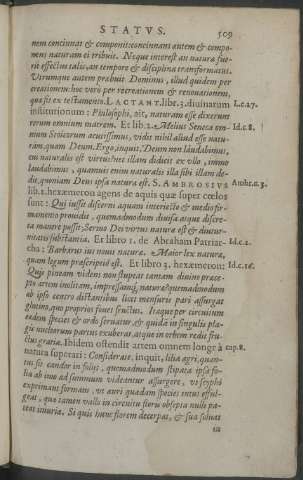 STATVS. 509
nem concinnat & componit: concinnans autem & compo-
nens naturam ei tribuit. Neque interest an natura fue-
rit effectus talis, an tempore & disciplina transformatus.
Vtrumque autem præbuit Dominus, illud quidem per
creationem: hoc verò per recreationem & renouationem,
quæ fit ex testamento. LACTANT. libr. 3. diuinarum L.c.27.
institutionum: Philosophi, ait, naturam esse dixerunt
rerum omnium matrem. Et lib. 2. Melius Seneca om- Id.c.8.
nium Stoicorum acutissimus, vidit nihil aliud esse natu-
ram, quam Deum. Ergo, inquit, Deum non laudabimus,
cui naturalis est virtus? nec illam didicit ex vllo, immo
laudabimus, quamuis enim naturalis illa sibi illam de-
dit, quoniam Deus ipsa natura est. S. AMBROSIVS Ambr.c.3.
lib. 2. hexæmeron agens de aquis quæ super cœlos
sunt: Qui iussit discerni aquam interiectu & medio fir-
mamento prouidit, quemadmodum diuisa atque discre-
ta manere possit: Sermo Dei virtus naturæ est & diutur-
nitatis substantia. Et libro 1. de Abraham Patriar- Id.c.2.
cha: Barbarus ius nouit naturæ. Maior lex natura,
quam legum præscriptio est. Et libro 3. hexæmeron; Id.c.16.
Qui pineam videns non stupeat tantam diuino præce-
pto artem inolitam, impressamque naturæ? quemadmodum
ab ipso centro distantibus licet mensuris pari assurgat
glutino, quo proprios fouet fructus. Itaque per circuitum
eadem species & ordo seruatur, & quidā in singulis pla-
gis nucularum partus exuberat, atque in orbem redit fru-
ctus gratia. Ibidem ostendit artem omnem longe à cap.8.
natura superari: Considerate, inquit, lilia agri, quan-
tus sit candor in foliis, quemadmodum stipata ipsa fo-
lia ab imo ad summum videantur assurgere, vt scyphi
exprimant formam, vt auri quædam species intus efful-
geat, quæ tamen vallo in circuitu floris obsepta nulli pa-
teat iniuria. Si quis hunc florem decerpat, & sua soluat
in